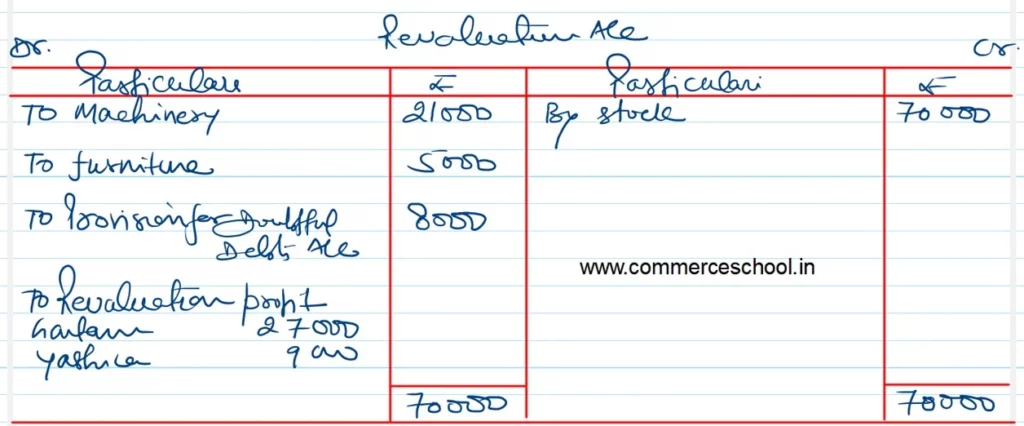 Revaluation A/c
Dr. Cr.
Particulars ₹ Particulars ₹
To Machinery 21000 By stock 70000
To furniture 5000
To Provision for Doubtful 8000
Debts A/c
www.commerceschool.in
To Revaluation profit
Gautam 27000
Yashica 9000
70000 70000